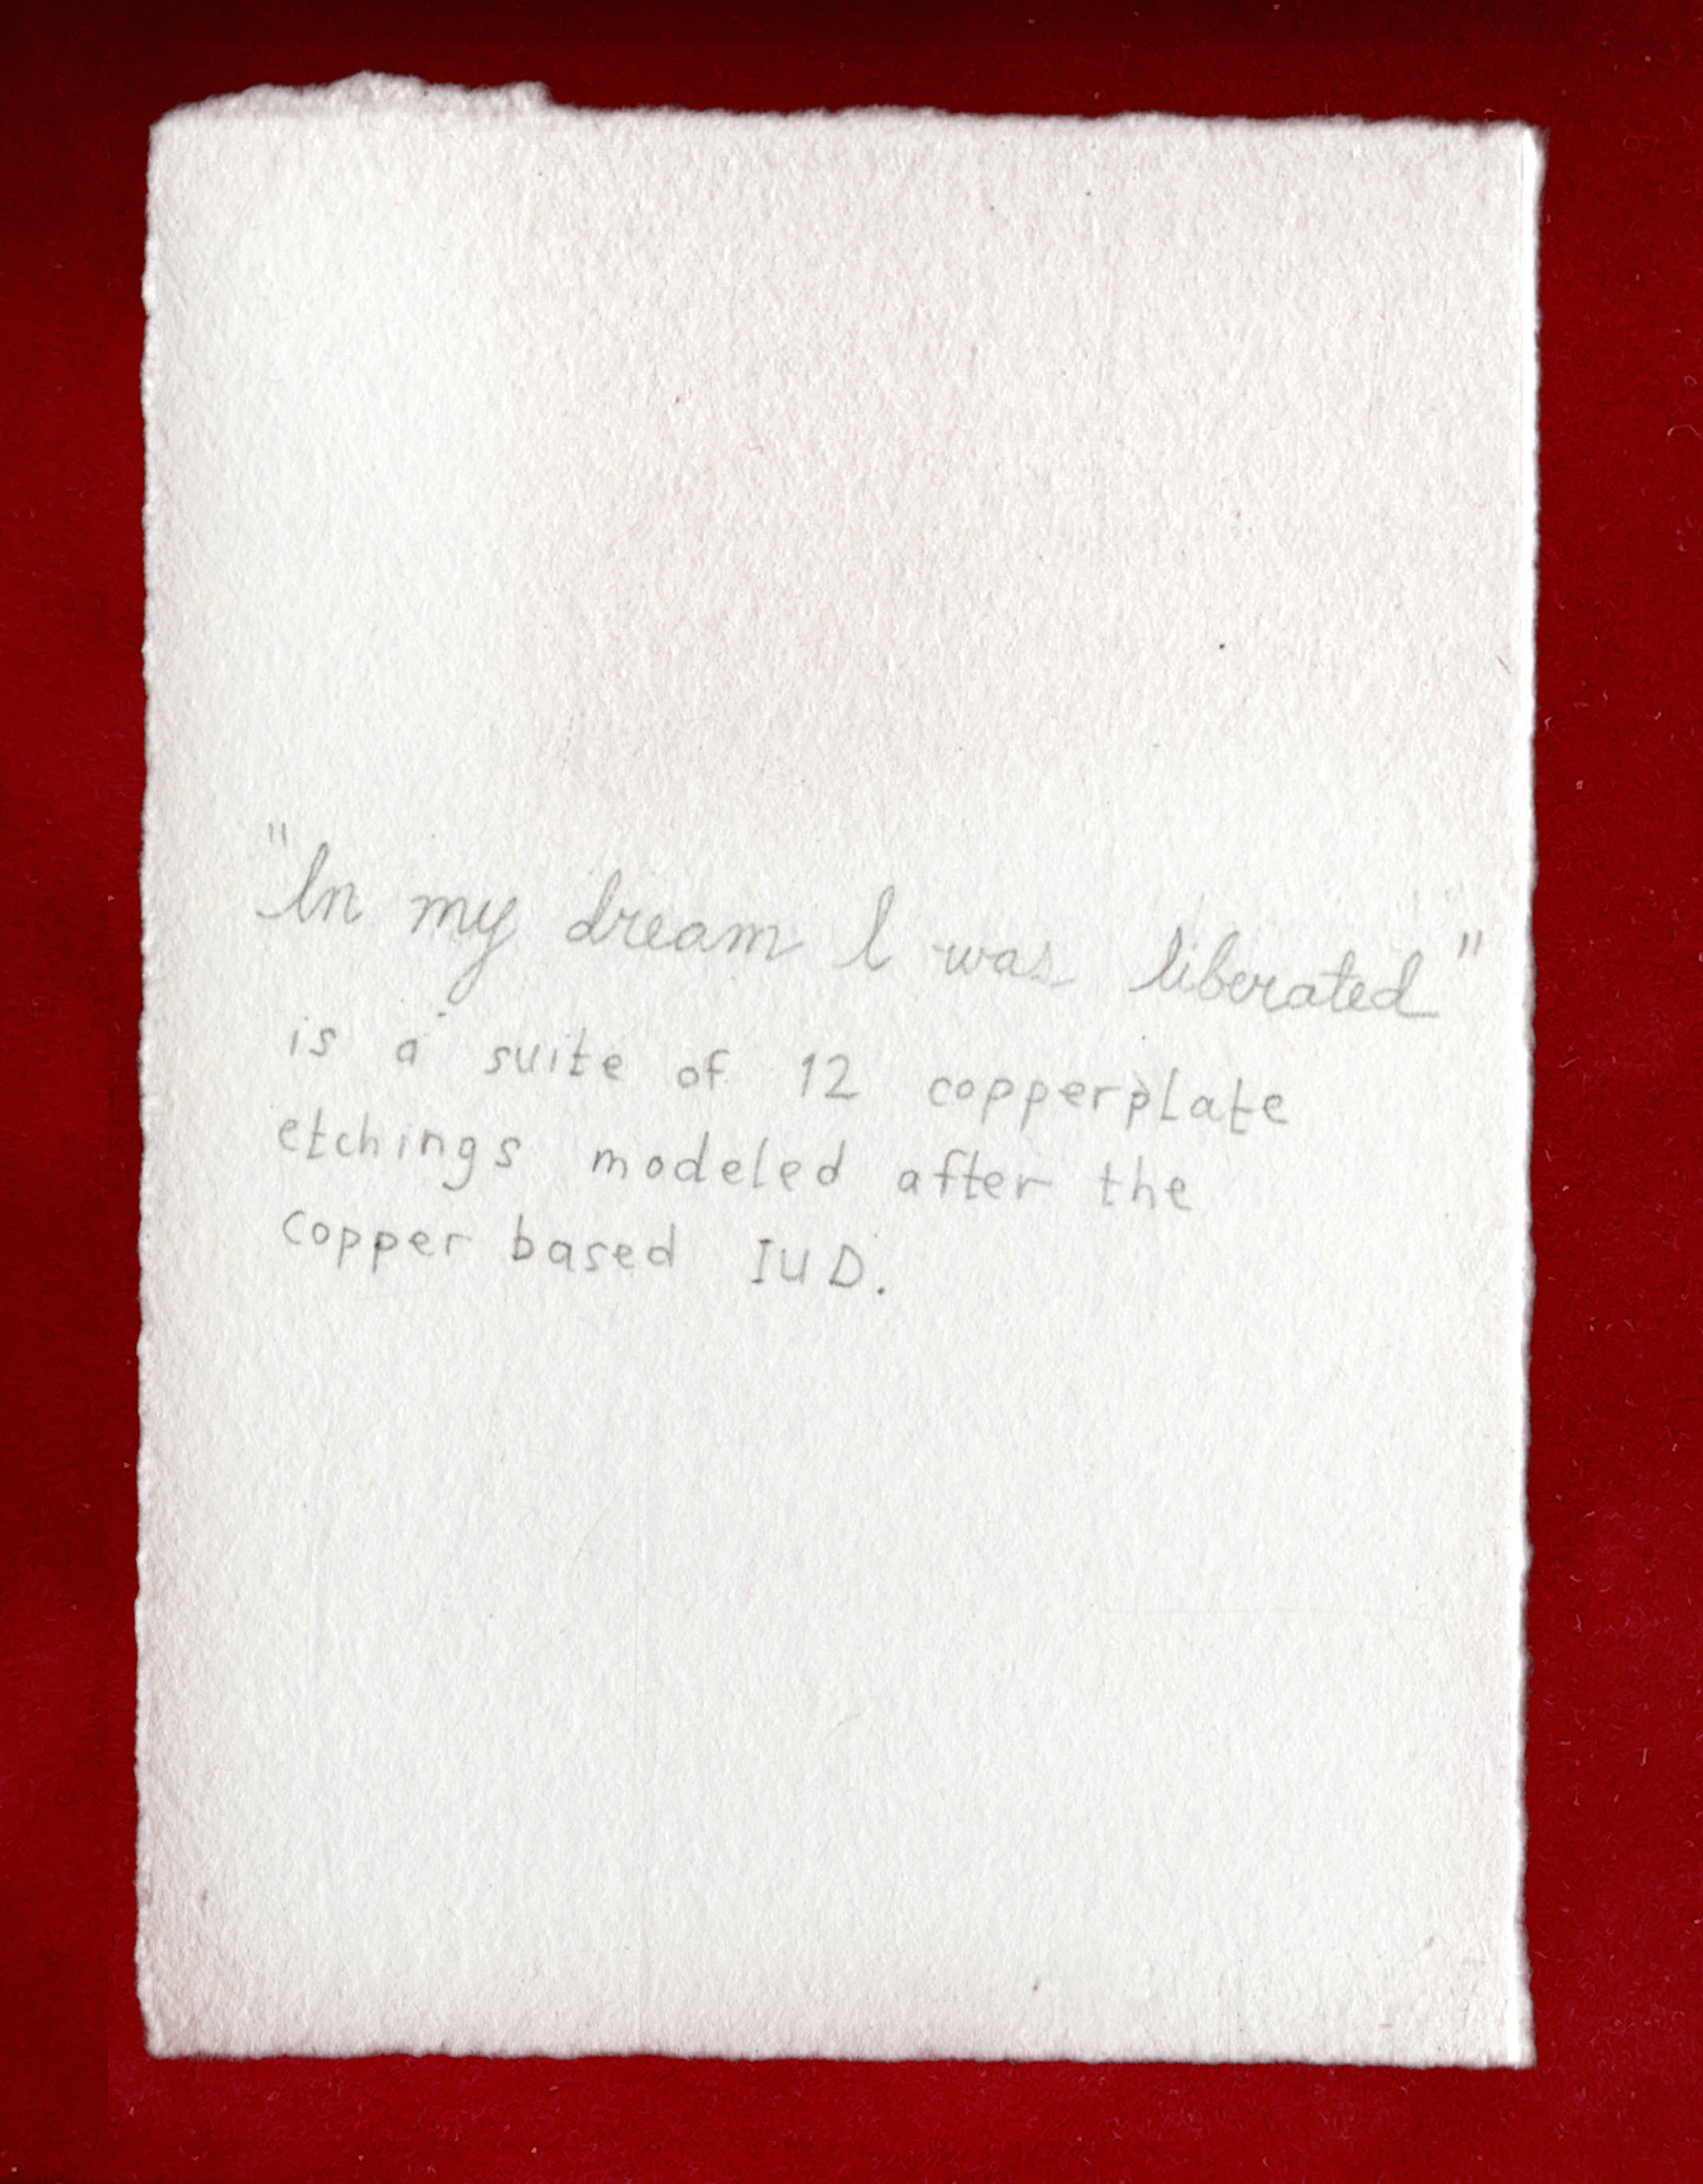 "In my dream I was liberated"
is a suite of 12 copperplate
etchings modeled after the
copper based IUD.